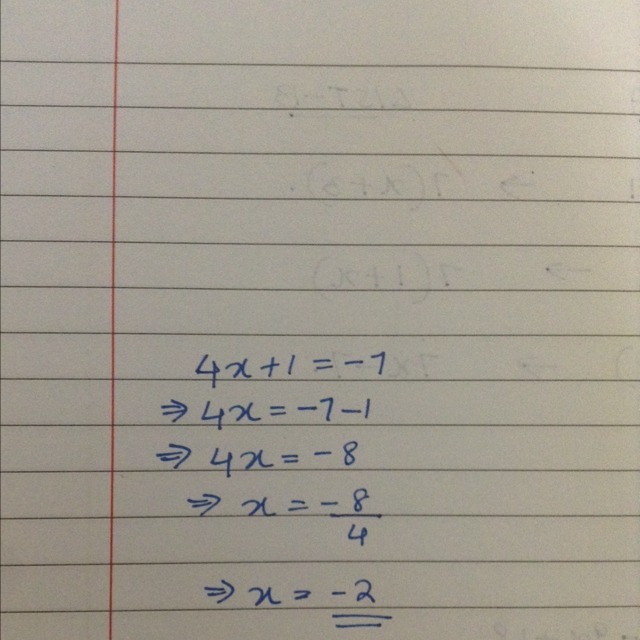 4x+1 = -7
⇒ 4x = -7-1
⇒ 4x = -8
⇒ x = -8/4
⇒ x = -2